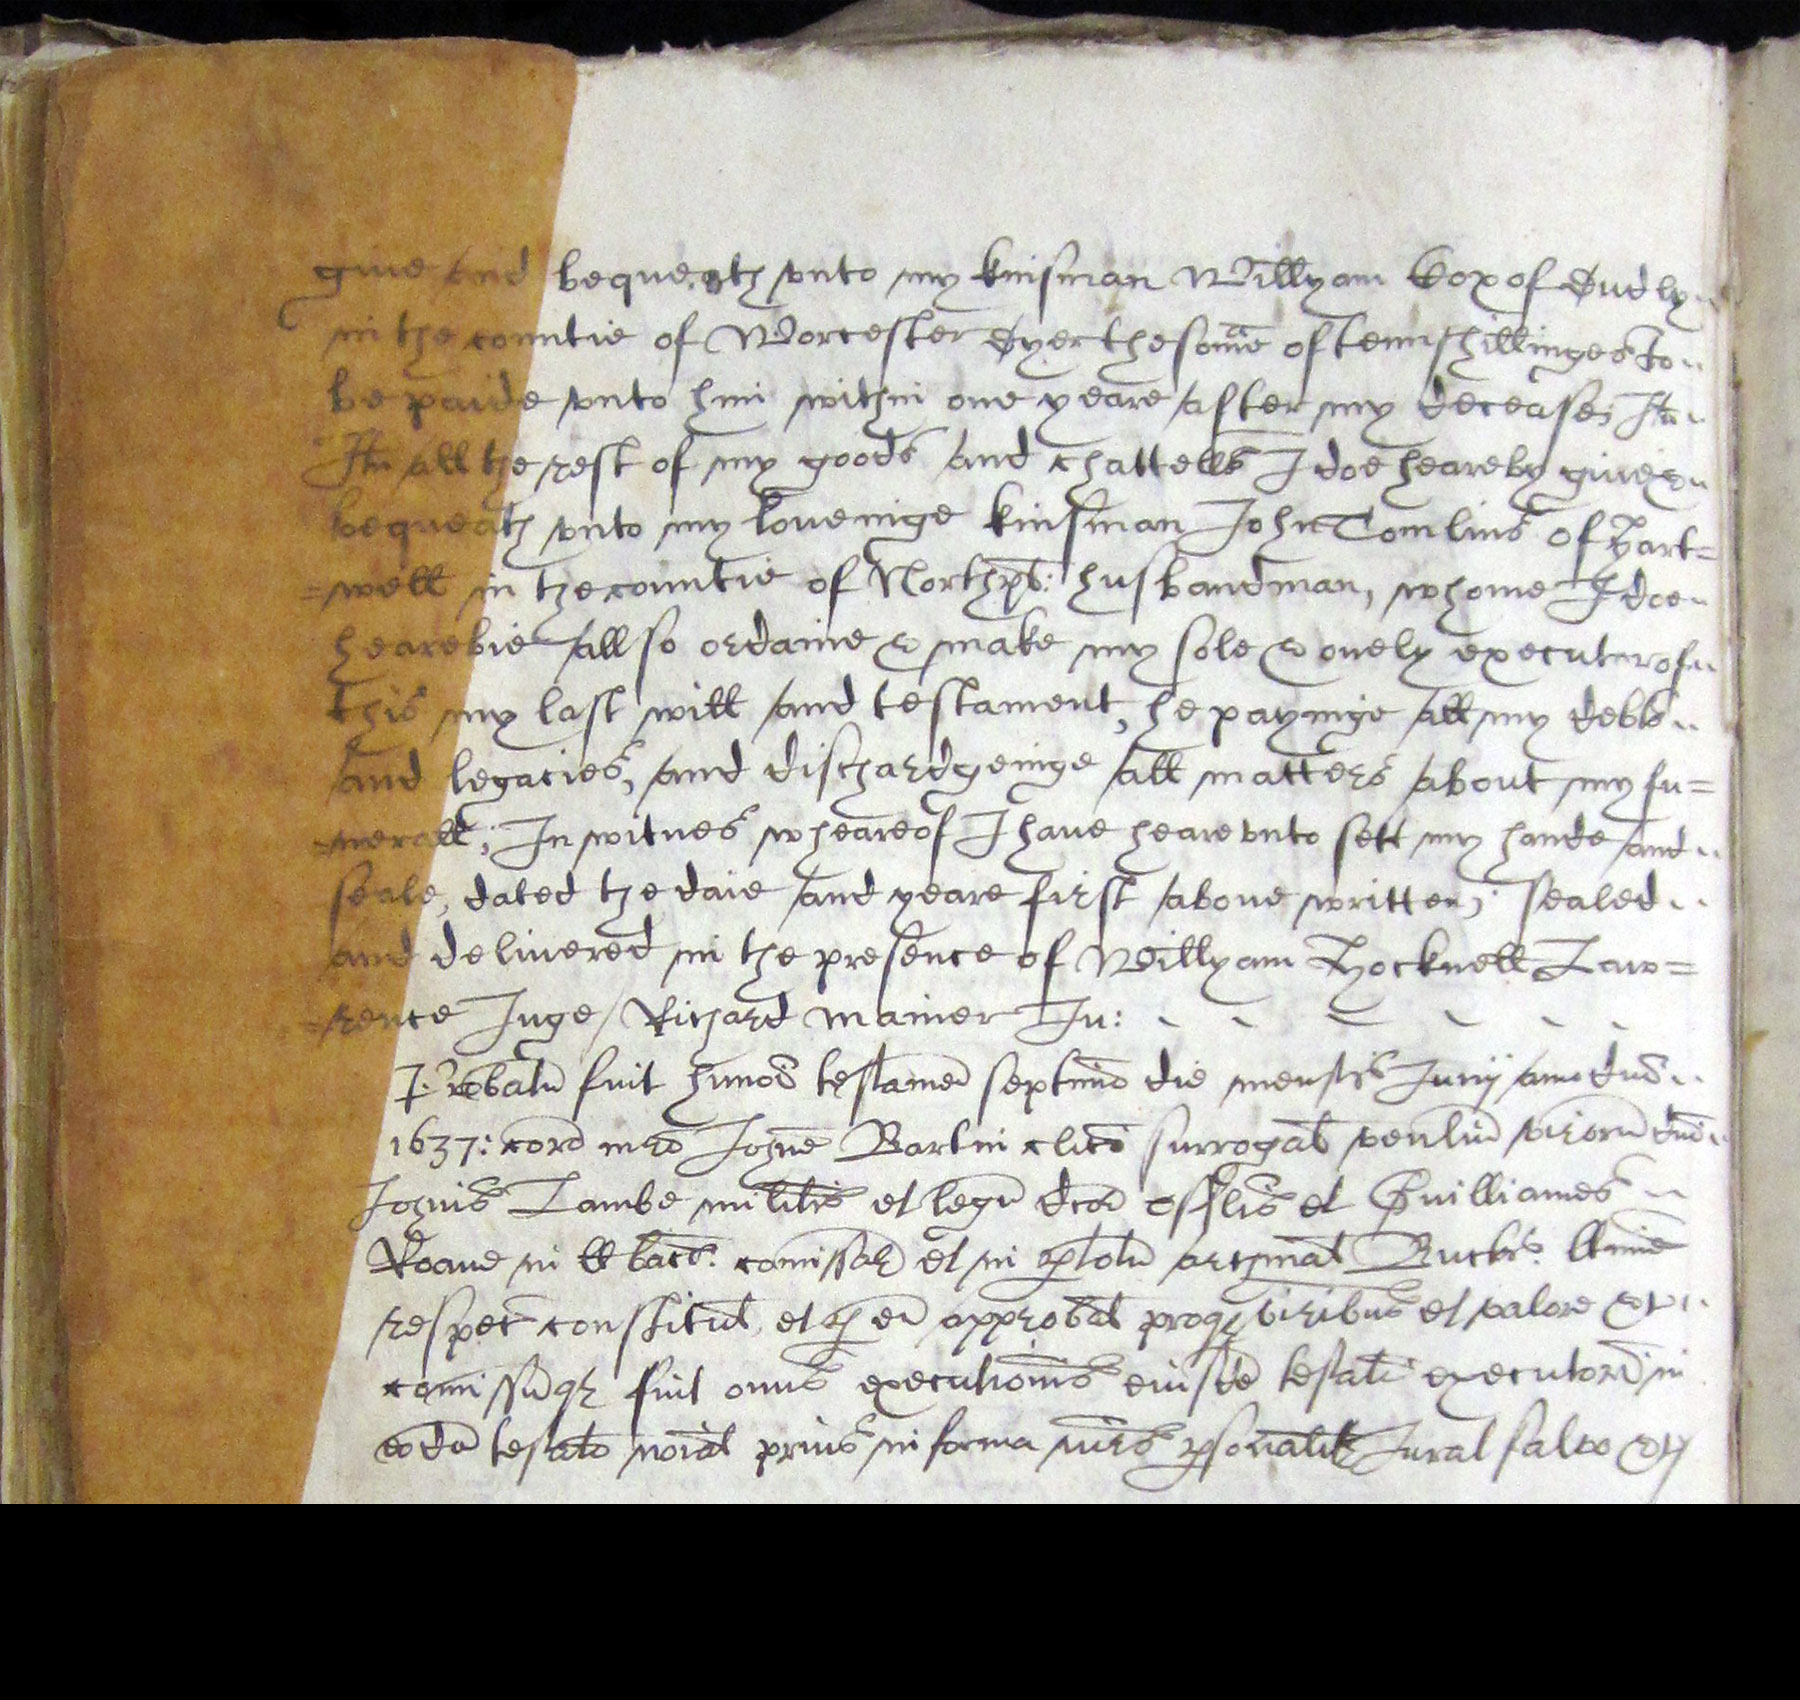 giue and bequeath vnto my kinsman Willyam Cox of Dudly
in the countie of Worcester Dyer the some of tenn shillinges to
be paide vnto him within one yeare after my decease; Itm
Itm all the rest of my goods and chattells I doe heareby giue &
bequeath vnto my loueinge kinsman John Tomlins of Hart=
=well in the countie of Northpt: husbandman, whome I doe
hearebie allso ordaine & make my sole & onely executor of
this my last will and testament, he payinge all my debts
and legacies, and dischardgeinge all matters about my fu=
=nerall; In witnes wheareof I haue heare vnto sett my hande and
seale, dated the daie and yeare first aboue written; sealed
and deliuered in the presence of Willyam Hocknell Law=
=rence Inge / Richard Mainer Ju:
Probatu fuit hmoi testamen septimo die mensis Junij anno dni
1637: cora mro Johne Bartin clico surrogat venliu viroru dni
Johnis Lambe militis et legu dcor offlis et Guilliames
Roane in ll bacs: comissar et in p totu archinat Bucks: ltime
respect constitut, et p eu approbat proqz viribus et valore &c
comissuqz fuit onus executionis eiusde testati executori in
eode testato noiat prius in forma iuris psonalitr Jurat saluo &c